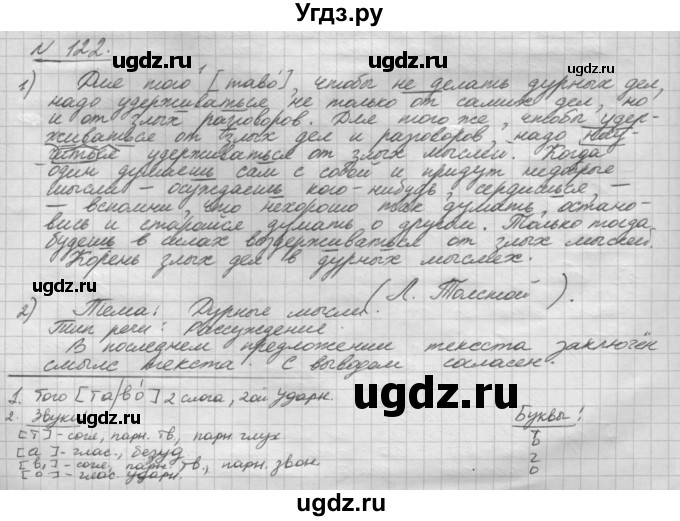 Угдз.ру
N 122.
1) Для того [таво́], чтобы не делать дурных дел,
надо удерживаться не только от самих дел, но
и от злых разговоров. Для того же, чтобы удер-
живаться от злых дел и разговоров, надо нау-
читься удерживаться от злых мыслей. Когда
один думаешь сам с собой и придут недобрые
мысли - осуждаешь кого-нибудь, сердишься, -
- вспомни, что нехорошо так думать, остано-
вись и старайся думать о другом. Только тогда
будешь в силах воздерживаться от злых мыслей.
Корень злых дел в дурных мыслях.
(Л. Толстой).
2) Тема: Дурные мысли.
Тип речи: Рассуждение.
В последнем предложении текста заключён
смысл текста. С выводом согласен.
1. Того [та|во́] 2 слога, 2ой ударн.
2. Звуки Буквы!
[т] - согл., парн. тв., парн глух.
[а] - глас., безуд
[в] - согл., парн. тв., парн. звон.
[о] - глас. ударн.
г
о
ugdz.ru ugdz.ru
ugdz.ru ugdz.ru
ugdz.ru ugdz.ru
ugdz.ru ugdz.ru
ugdz.ru ugdz.ru
ugdz.ru ugdz.ru
ugdz.ru
Угдз.ру